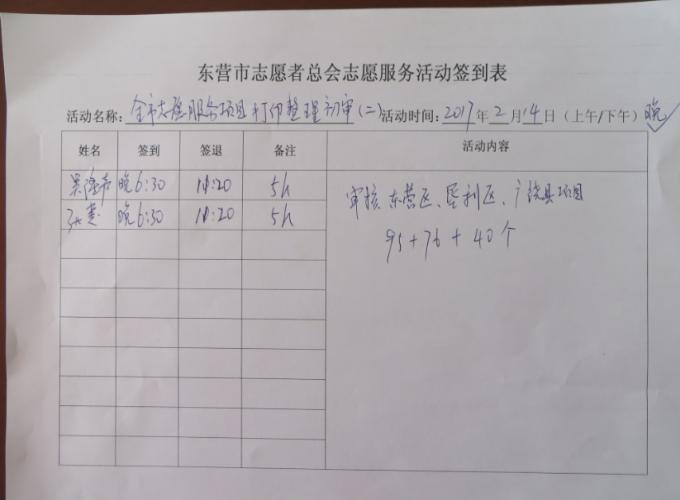 东营市志愿者总会志愿服务活动签到表
活动名称：全市志愿服务项目打印整理初审（二）活动时间：2017年2月14日（上午/下午）晚✓
姓名 签到 签退 备注 活动内容
晚6:30 11:20 5h
晚6:30 11:20 5h
审核东营区、垦利区、广饶县项目
95+76+40个